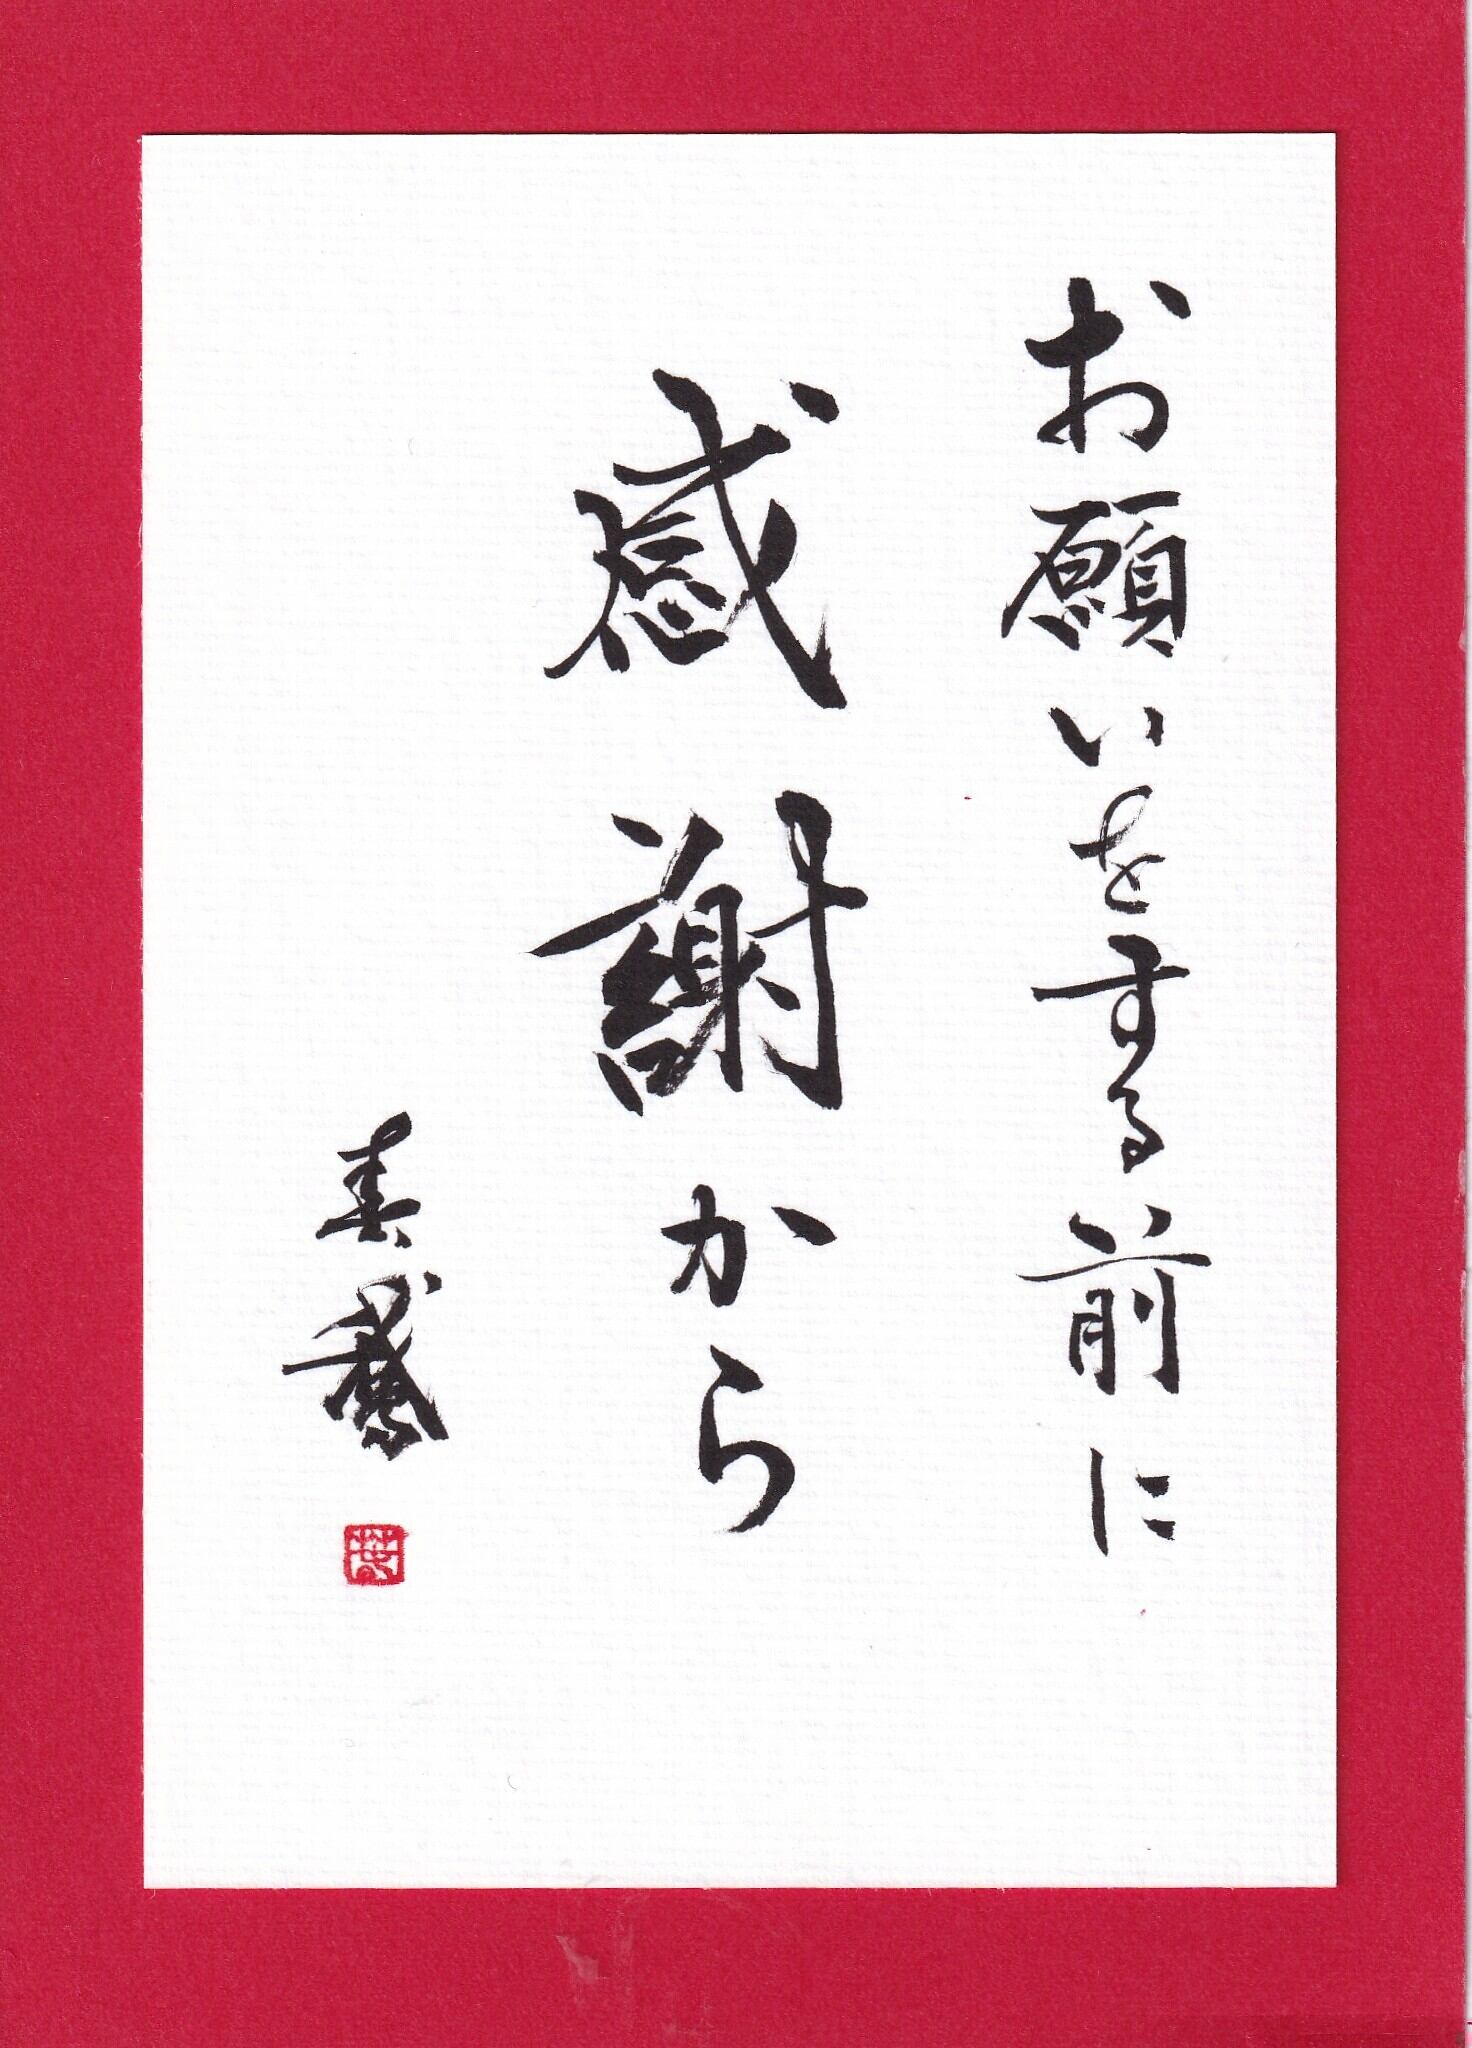 お願いをする前に
感謝から